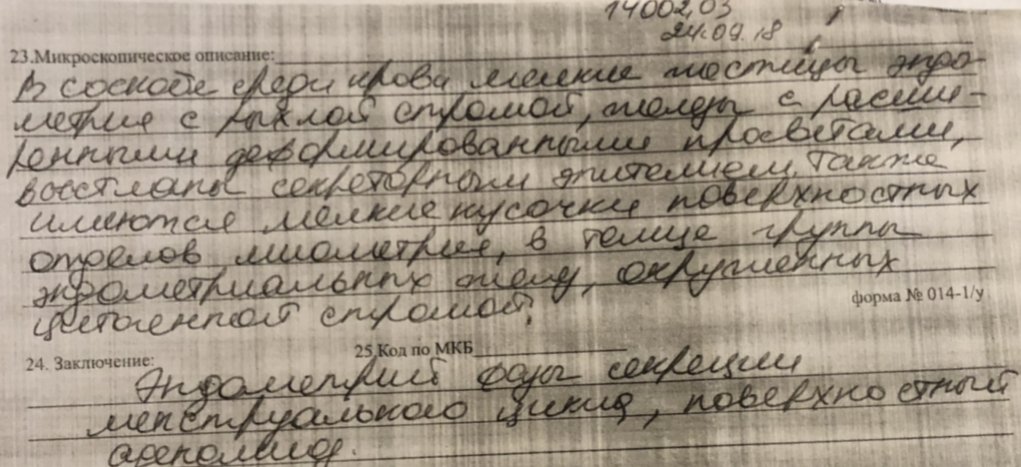 14002,03
24.09.18
23.Микроскопическое описание:
В соскобе среди крови мелкие частицы эндо-
метрия с рыхлой стромой, железы с расши-
ренными деформированными просветами,
выстланы секреторным эпителием. Также
имеются мелкие кусочки поверхностных
отделов миометрия, в толще группы
эндометриальных желез, окруженных
цитогенной стромой.
форма № 014-1/у
24. Заключение:
25.Код по МКБ
Эндометрий фазы секреции
менструального цикла, поверхностный
аденомиоз.